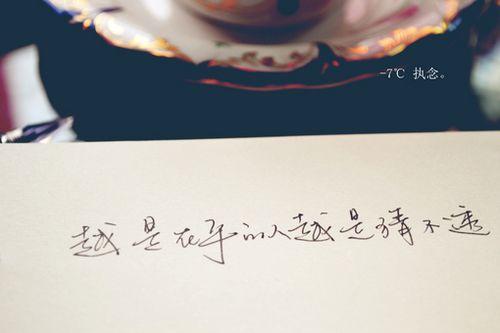 -7℃ 执念。
越是在乎的人越是猜不透